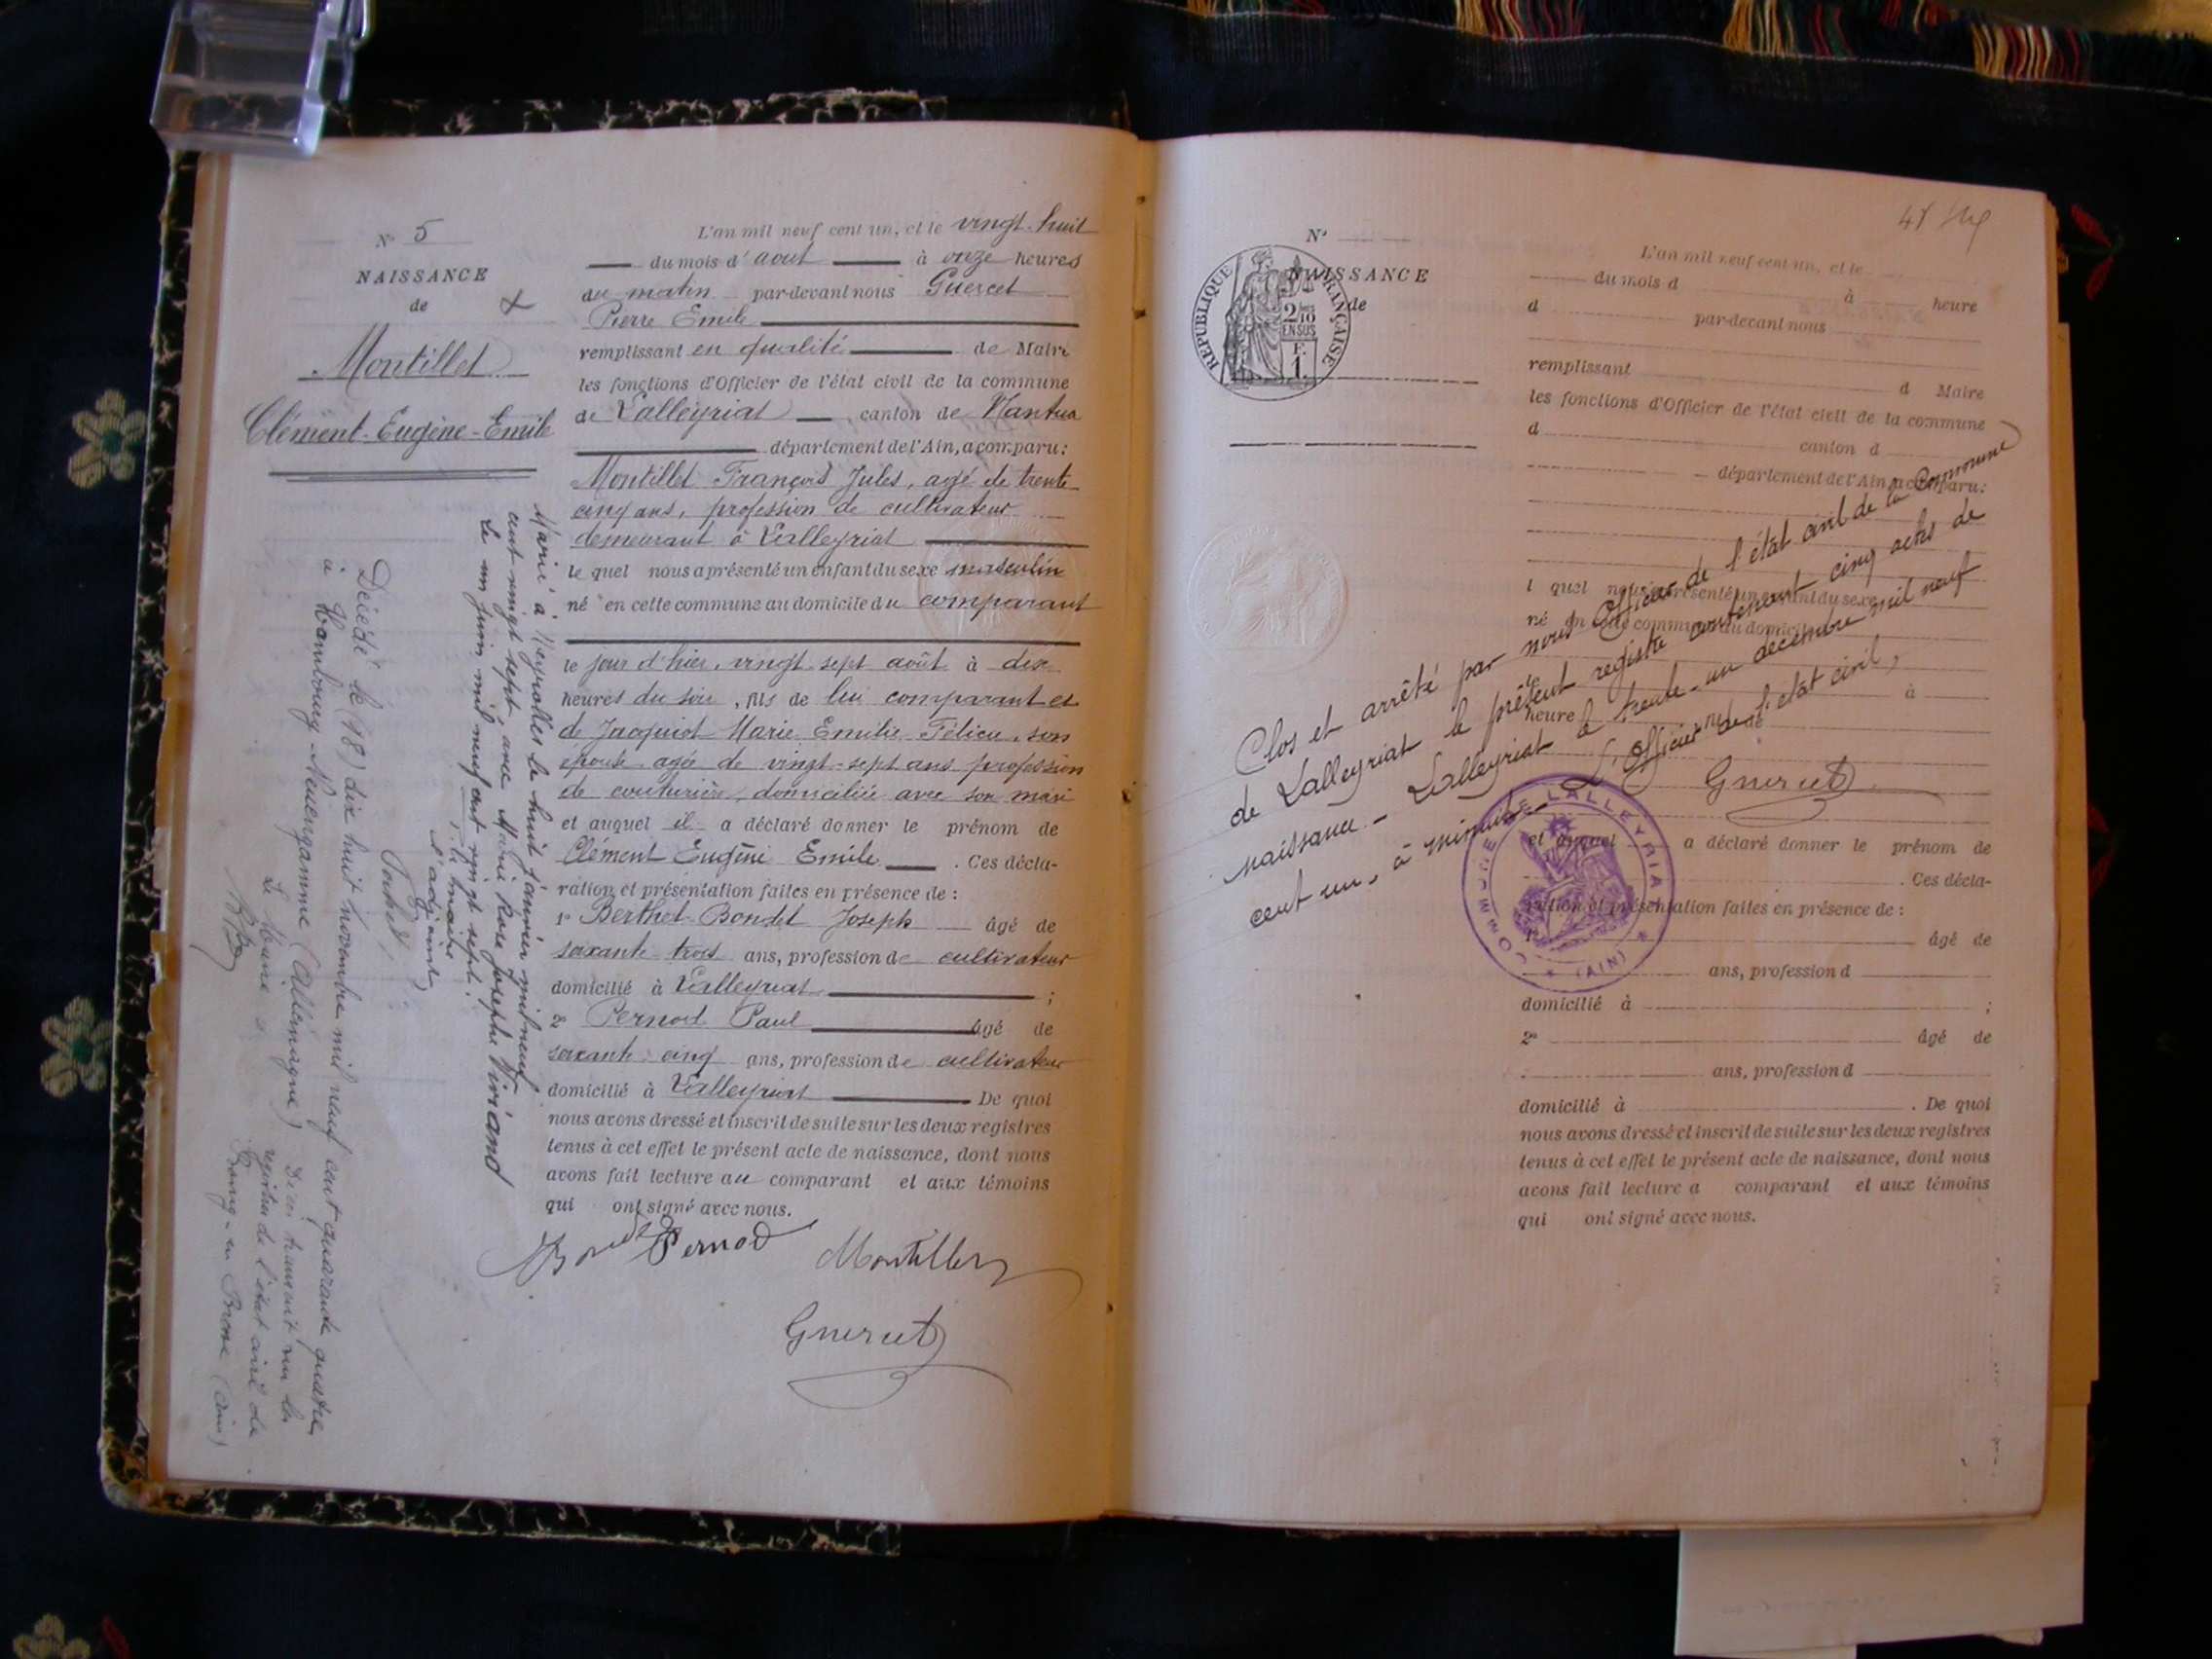 N° 5
NAISSANCE
de
Montillet
Clément-Eugène-Emile
L'an mil neuf cent un, et le vingt-huit
du mois d'août à onze heures
du matin par-devant nous Guercet
Pierre Emile
remplissant en qualité de Maire
les fonctions d'Officier de l'état civil de la commune
de Lalleyriat canton de Nantua
département de l'Ain, a comparu:
Montillet François Jules, agé de trente
cinq ans, profession de cultivateur
demeurant à Lalleyriat
le quel nous a présenté un enfant du sexe masculin
né en cette commune au domicile du comparant
le jour d'hier, vingt-sept août à dix
heures du soir, fils de lui comparant et
de Jacquiot Marie Emilie Félicie, son
épouse agée de vingt-sept ans profession
de couturière, domiciliée avec son mari
et auquel il a déclaré donner le prénom de
Clément Eugène Emile. Ces décla-
ration et présentation faites en présence de :
1° Berthet-Bondet Joseph âgé de
soixante trois ans, profession de cultivateur
domicilié à Lalleyriat ;
2° Pernod Paul âgé de
soixante cinq ans, profession de cultivateur
domicilié à Lalleyriat De quoi
nous avons dressé et inscrit de suite sur les deux registres
tenus à cet effet le présent acte de naissance, dont nous
avons fait lecture au comparant et aux témoins
qui ont signé avec nous.
Bondet Pernod Montillet
Guercet
Marié à Neyrolles le huit janvier mil neuf
cent vingt sept, avec Marie Rose Josephe Viviand
Le un juin mil neuf cent vingt sept.
P. le maire
l'adjoint,
Décédé le (18) dix huit novembre mil neuf cent quarante quatre
à Hambourg-Neuengamme (Allemagne)
Le Maire
registres de l'état civil de
Bourg-en-Bresse (Ain)
N°
NAISSANCE
de
REPUBLIQUE FRANÇAISE
2/10
EN SUS
F.
1.
L'an mil neuf cent un, et le
du mois d à heure
d par-devant nous
remplissant d Maire
les fonctions d'Officier de l'état civil de la commune
d canton d
département de l'Ain, a comparu:
l quel nous a présenté un enfant du sexe
né en cette commune au domicile
le à
heure
Clos et arrêté par nous Officier de l'état civil de la Commune
de Lalleyriat le présent registre contenant cinq actes de
naissance - Lalleyriat le trente-un décembre mil neuf
cent un, à minuit - L'Officier de l'état civil,
Guercet
COMMUNE DE LALLEYRIAT
(AIN)
et auquel a déclaré donner le prénom de
. Ces décla-
ration et présentation faites en présence de :
1° âgé de
ans, profession d
domicilié à ;
2° âgé de
ans, profession d
domicilié à . De quoi
nous avons dressé et inscrit de suite sur les deux registres
tenus à cet effet le présent acte de naissance, dont nous
avons fait lecture a comparant et aux témoins
qui ont signé avec nous.